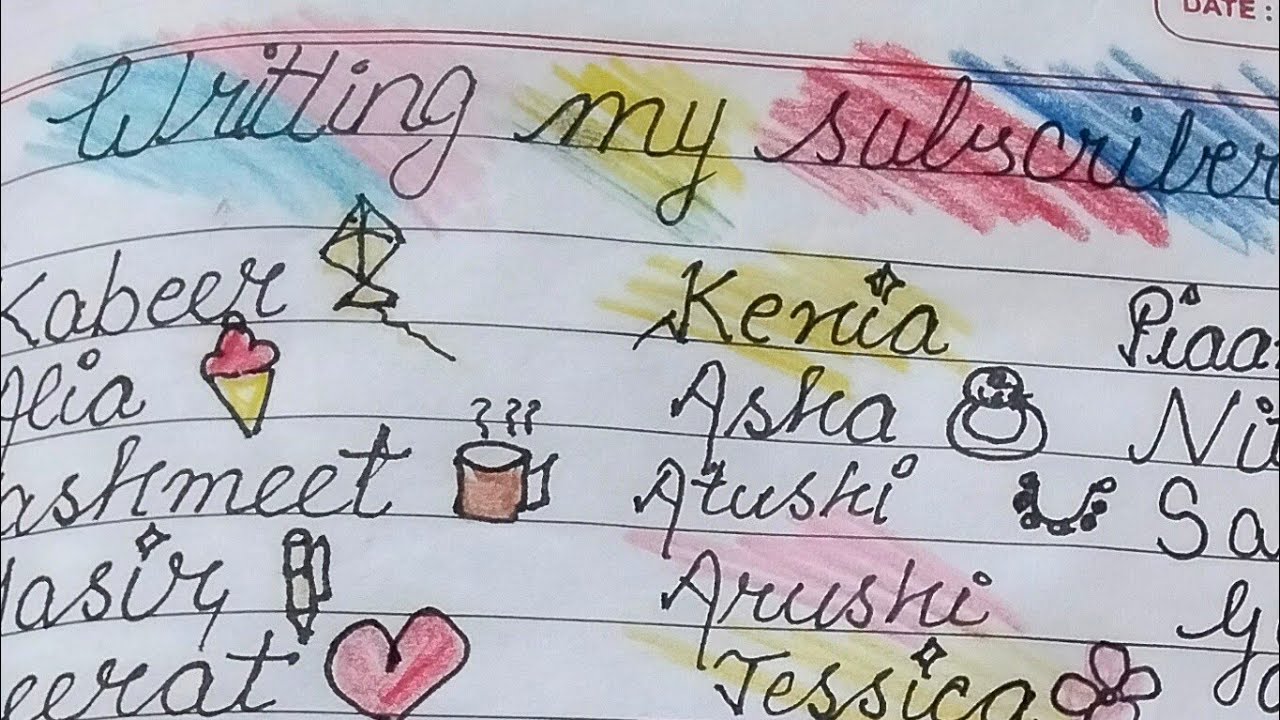 DATE :
Writing my subscriber
Kabeer Kenia Piaa
Alia Asha Ni
ashmeet Atushi Sa
asir Arushi
eerat Jessica